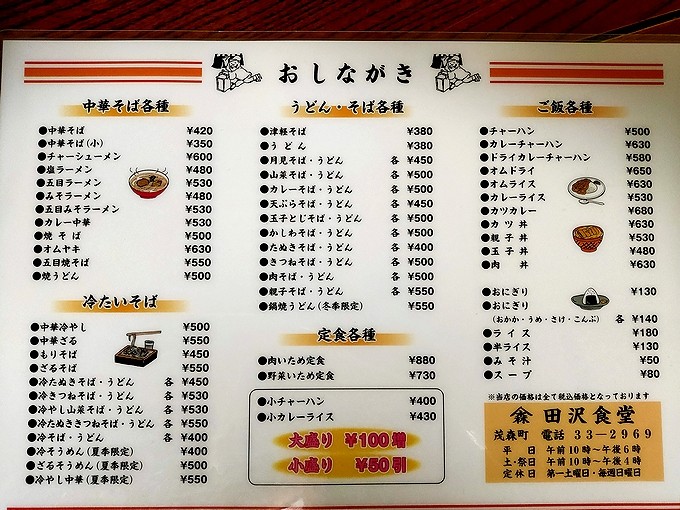 おしながき
中華そば各種
●中華そば ¥420
●中華そば(小) ¥350
●チャーシューメン ¥600
●塩ラーメン ¥480
●五目ラーメン ¥530
●みそラーメン ¥480
●五目みそラーメン ¥530
●カレー中華 ¥530
●焼そば ¥500
●オムヤキ ¥630
●五目焼そば ¥550
●焼うどん ¥500
冷たいそば
●中華冷やし ¥500
●中華ざる ¥550
●もりそば ¥450
●ざるそば ¥550
●冷たぬきそば・うどん 各 ¥450
●冷きつねそば・うどん 各 ¥530
●冷やし山菜そば・うどん 各 ¥530
●冷たぬききつねそば・うどん 各 ¥550
●冷そば・うどん 各 ¥400
●冷そうめん(夏季限定) ¥400
●ざるそうめん(夏季限定) ¥500
●冷やし中華(夏季限定) ¥550
うどん・そば各種
●津軽そば ¥380
●うどん ¥380
●月見そば・うどん 各 ¥450
●山菜そば・うどん 各 ¥500
●カレーそば・うどん 各 ¥500
●天ぷらそば・うどん 各 ¥450
●玉子とじそば・うどん 各 ¥500
●かしわそば・うどん 各 ¥500
●たぬきそば・うどん 各 ¥400
●きつねそば・うどん 各 ¥500
●肉そば・うどん 各 ¥500
●親子そば・うどん 各 ¥550
●鍋焼うどん(冬季限定) ¥550
定食各種
●肉いため定食 ¥880
●野菜いため定食 ¥730
●小チャーハン ¥400
●小カレーライス ¥430
大盛り ¥100増
小盛り ¥50引
ご飯各種
●チャーハン ¥500
●カレーチャーハン ¥630
●ドライカレーチャーハン ¥580
●オムドライ ¥650
●オムライス ¥630
●カレーライス ¥530
●カツカレー ¥680
●カツ丼 ¥630
●親子丼 ¥530
●玉子丼 ¥480
●肉丼 ¥630
●おにぎり ¥130
●おにぎり
(おかか・うめ・さけ・こんぶ) 各 ¥140
●ライス ¥180
●半ライス ¥130
●みそ汁 ¥50
●スープ ¥80
※当店の価格は全て税込価格となっております
田沢食堂
茂森町 電話 33-2969
平日 午前10時〜午後6時
土・祭日 午前10時〜午後4時
定休日 第一土曜日・毎週日曜日